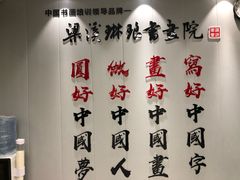 中国书画培训领导品牌
梁溪琳琅书画院
寫好中國字
畫好中國畫
做好中國人
圓好中國夢